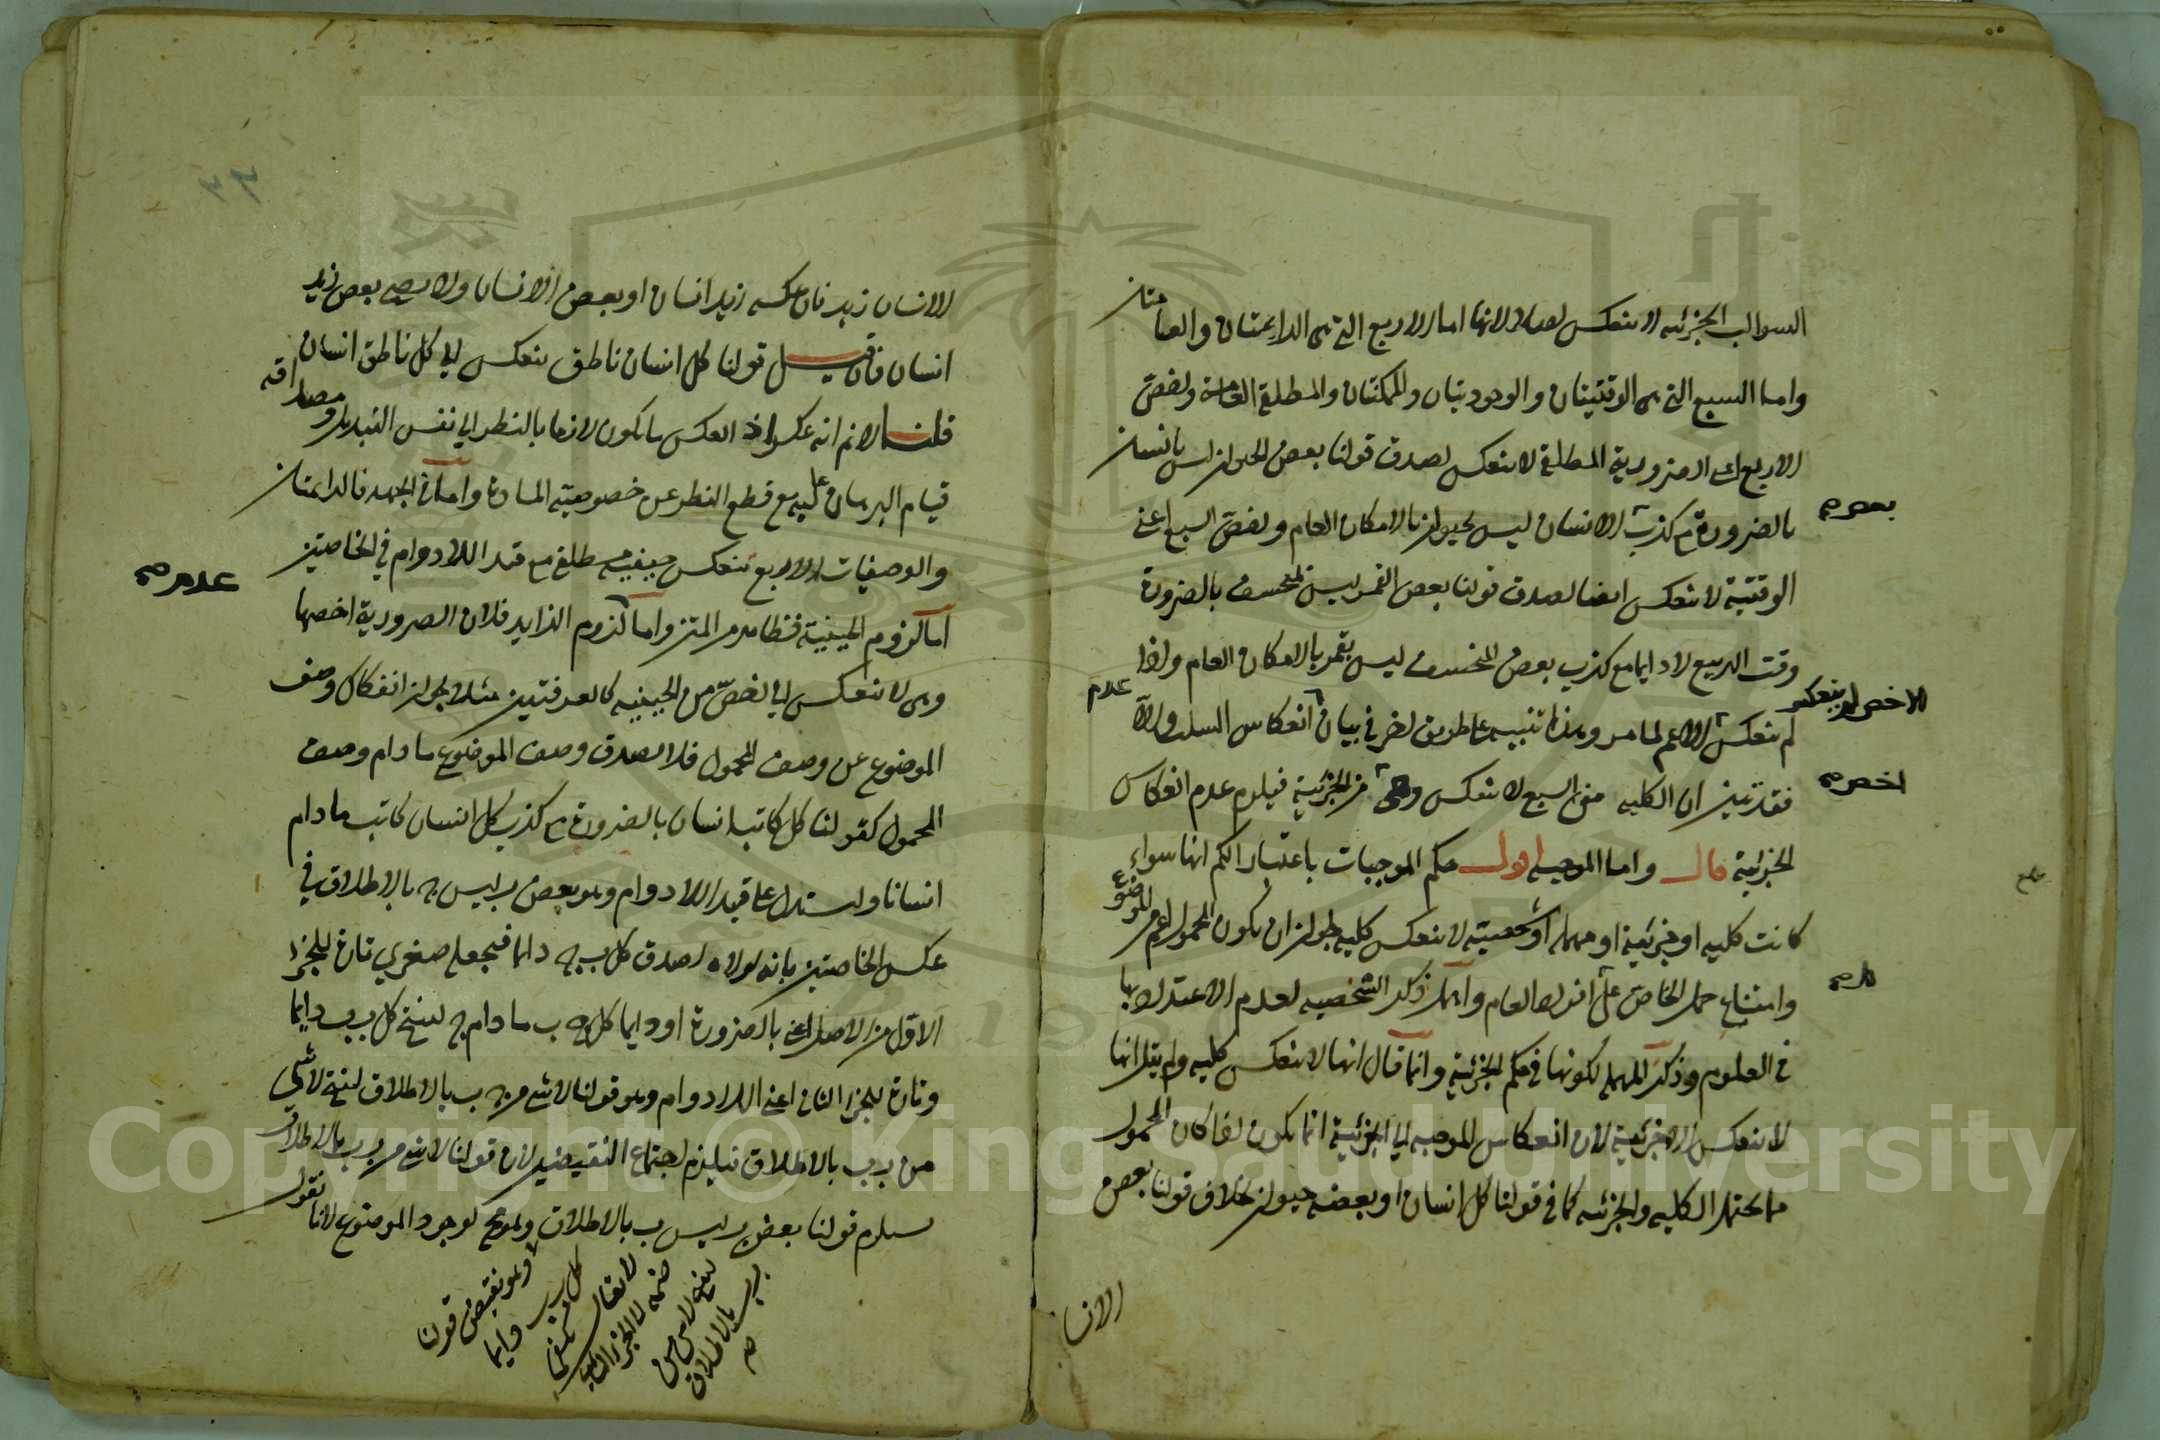 السوالب الجزئيه لا تنعكس لعادة لانها اما الاربع التي هى الدايمتان والعامتان
واما السبع التي هى الوقتيتان والوجوديتان والممكنتان والمطلقة العامة واخص
الاربع اى الضرورية المطلقة لا تنعكس لصدق قولنا بعض الحيوان ليس بانسان
بالضرورة مع كذب الانسان ليس بحيوان بالامكان العام واخص السبع اعنى
بعض صح
الوقتية لا تنعكس ايضا لصدق قولنا بعض القمر ليس بمنخسف بالضرورة
وقت التربيع لا دايما مع كذب بعض المنخسف ليس بقمر بالامكان العام واذا
لم تنعكس الاعم لما مر وهذا تنبيه على طريق اخر في بيان انعكاس السلب والا
عدم
الاخص لم ينعكس
فقد تبين ان الكليه من السبع لا تنعكس وهى من الجزئية فيلزم عدم انعكاس
اخص صح
الجزئية قال واما الموجبه اقول حكم الموجبات باعتبار الكم انها سواء
كانت كليه او جزئية او مهمله او شخصيته لا تنعكس كليه لجواز ان يكون المحمول اعم من الموضوع
وامتناع حمل الخاص على افراد العام واهمل ذكر الشخصيه لعدم الاعتداد بها
في العلوم وذكر المهمله لكونها في حكم الجزئية وانما قال انها لا تنعكس كليه ولم يقل انها
لا تنعكس الا جزئية لان انعكاس الموجبه الى الجزئية انما يكون اذا كان المحمول
مما يحتمل الكليه والجزئيه كما في قولنا كل انسان او بعضه حيوان بخلاف قولنا بعض
الانسا
٣٣
الانسان زيد فان عكسه زيد انسان او بعض الانسان ولا يصح بعض زيد
انسان فان قيل قولنا كل انسان ناطق ينعكس الى كل ناطق انسان
قلنا لا نم انه عكس اذ العكس ما يكون لازما بالنظر الى نفس التبديل ومصداقه
قيام البرهان عليه مع قطع النظر عن خصوصية المادة واما في الجهه فالدايمتان
والوصفيات الاربع تنعكس حينيه مطلقة مع قيد اللادوام في الخاصتين
عدم صح
اما لزوم الحينية فظاهر من المتن واما لزوم الزايد فلان الضرورية اخصها
وهى لا تنعكس الى اخص من الحينيه كالعرفيتين مثلا لجواز انفكاك وصف
الموضوع عن وصف المحمول فلا يصدق وصف الموضوع ما دام وصف
المحمول كقولنا كل كاتب انسان بالضرورة مع كذب كل انسان كاتب ما دام
انسانا واستدل على قيد اللادوام وهو بعض ب ليس ج بالاطلاق في
عكس الخاصتين بانه لولاه لصدق كل ب ج دائما فيجعل صغرى تارة للجزء
الاول من الاصل اعنى بالضرورة او دايما كل ج ب ما دام ج لينتج كل ب ب دايما
وتارة للجزء الثاني اعنى اللادوام وهو قولنا لا شئ من ج ب بالاطلاق لينتج لا شئ
من ب ب بالاطلاق فيلزم اجتماع النقيضين لان قولنا لا شئ من ب ب بالاطلاق
يستلزم قولنا بعض ب ليس ب بالاطلاق وهو مح لوجود الموضوع لانا نقول
وهو نقيض قولنا
كل ب ب دايما
لا يقال
ب ب بالاطلاق
صح